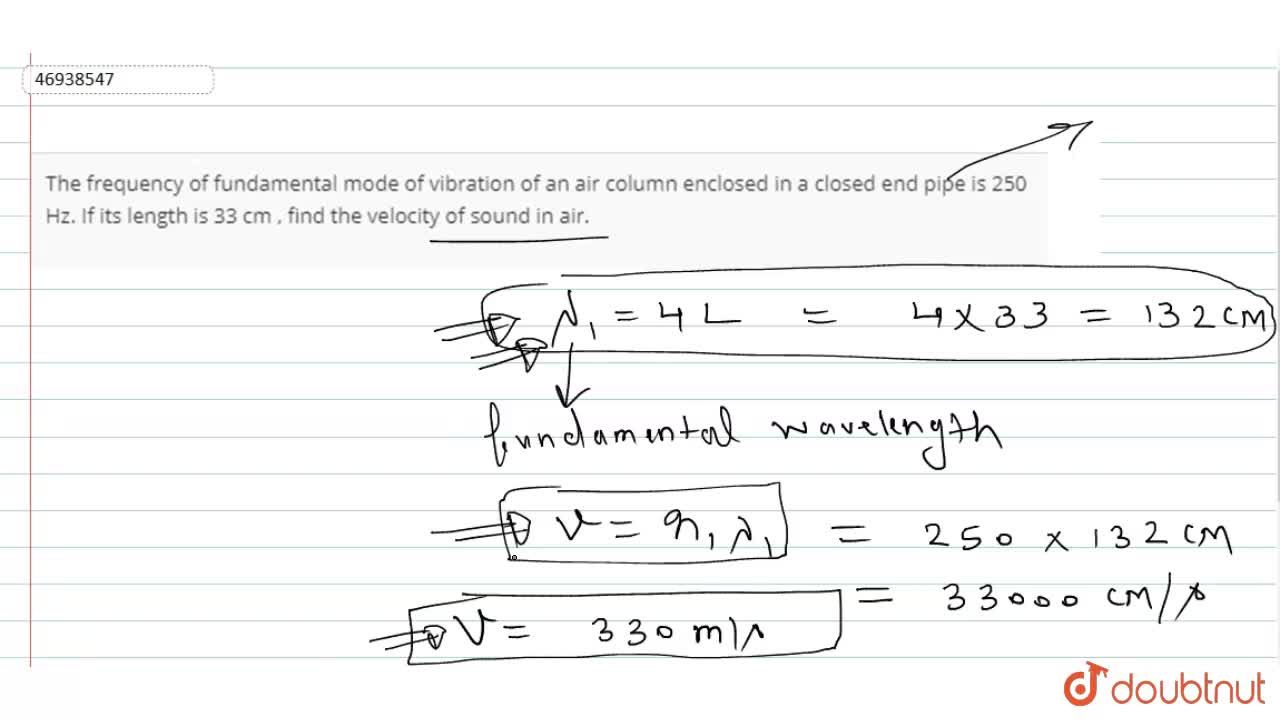 46938547
The frequency of fundamental mode of vibration of an air column enclosed in a closed end pipe is 250
Hz. If its length is 33 cm , find the velocity of sound in air.
λ₁ = 4L = 4 × 33 = 132 cm
fundamental wavelength
v = n₁ λ₁ = 250 × 132 cm
= 33000 cm/s
v = 330 m/s
doubtnut